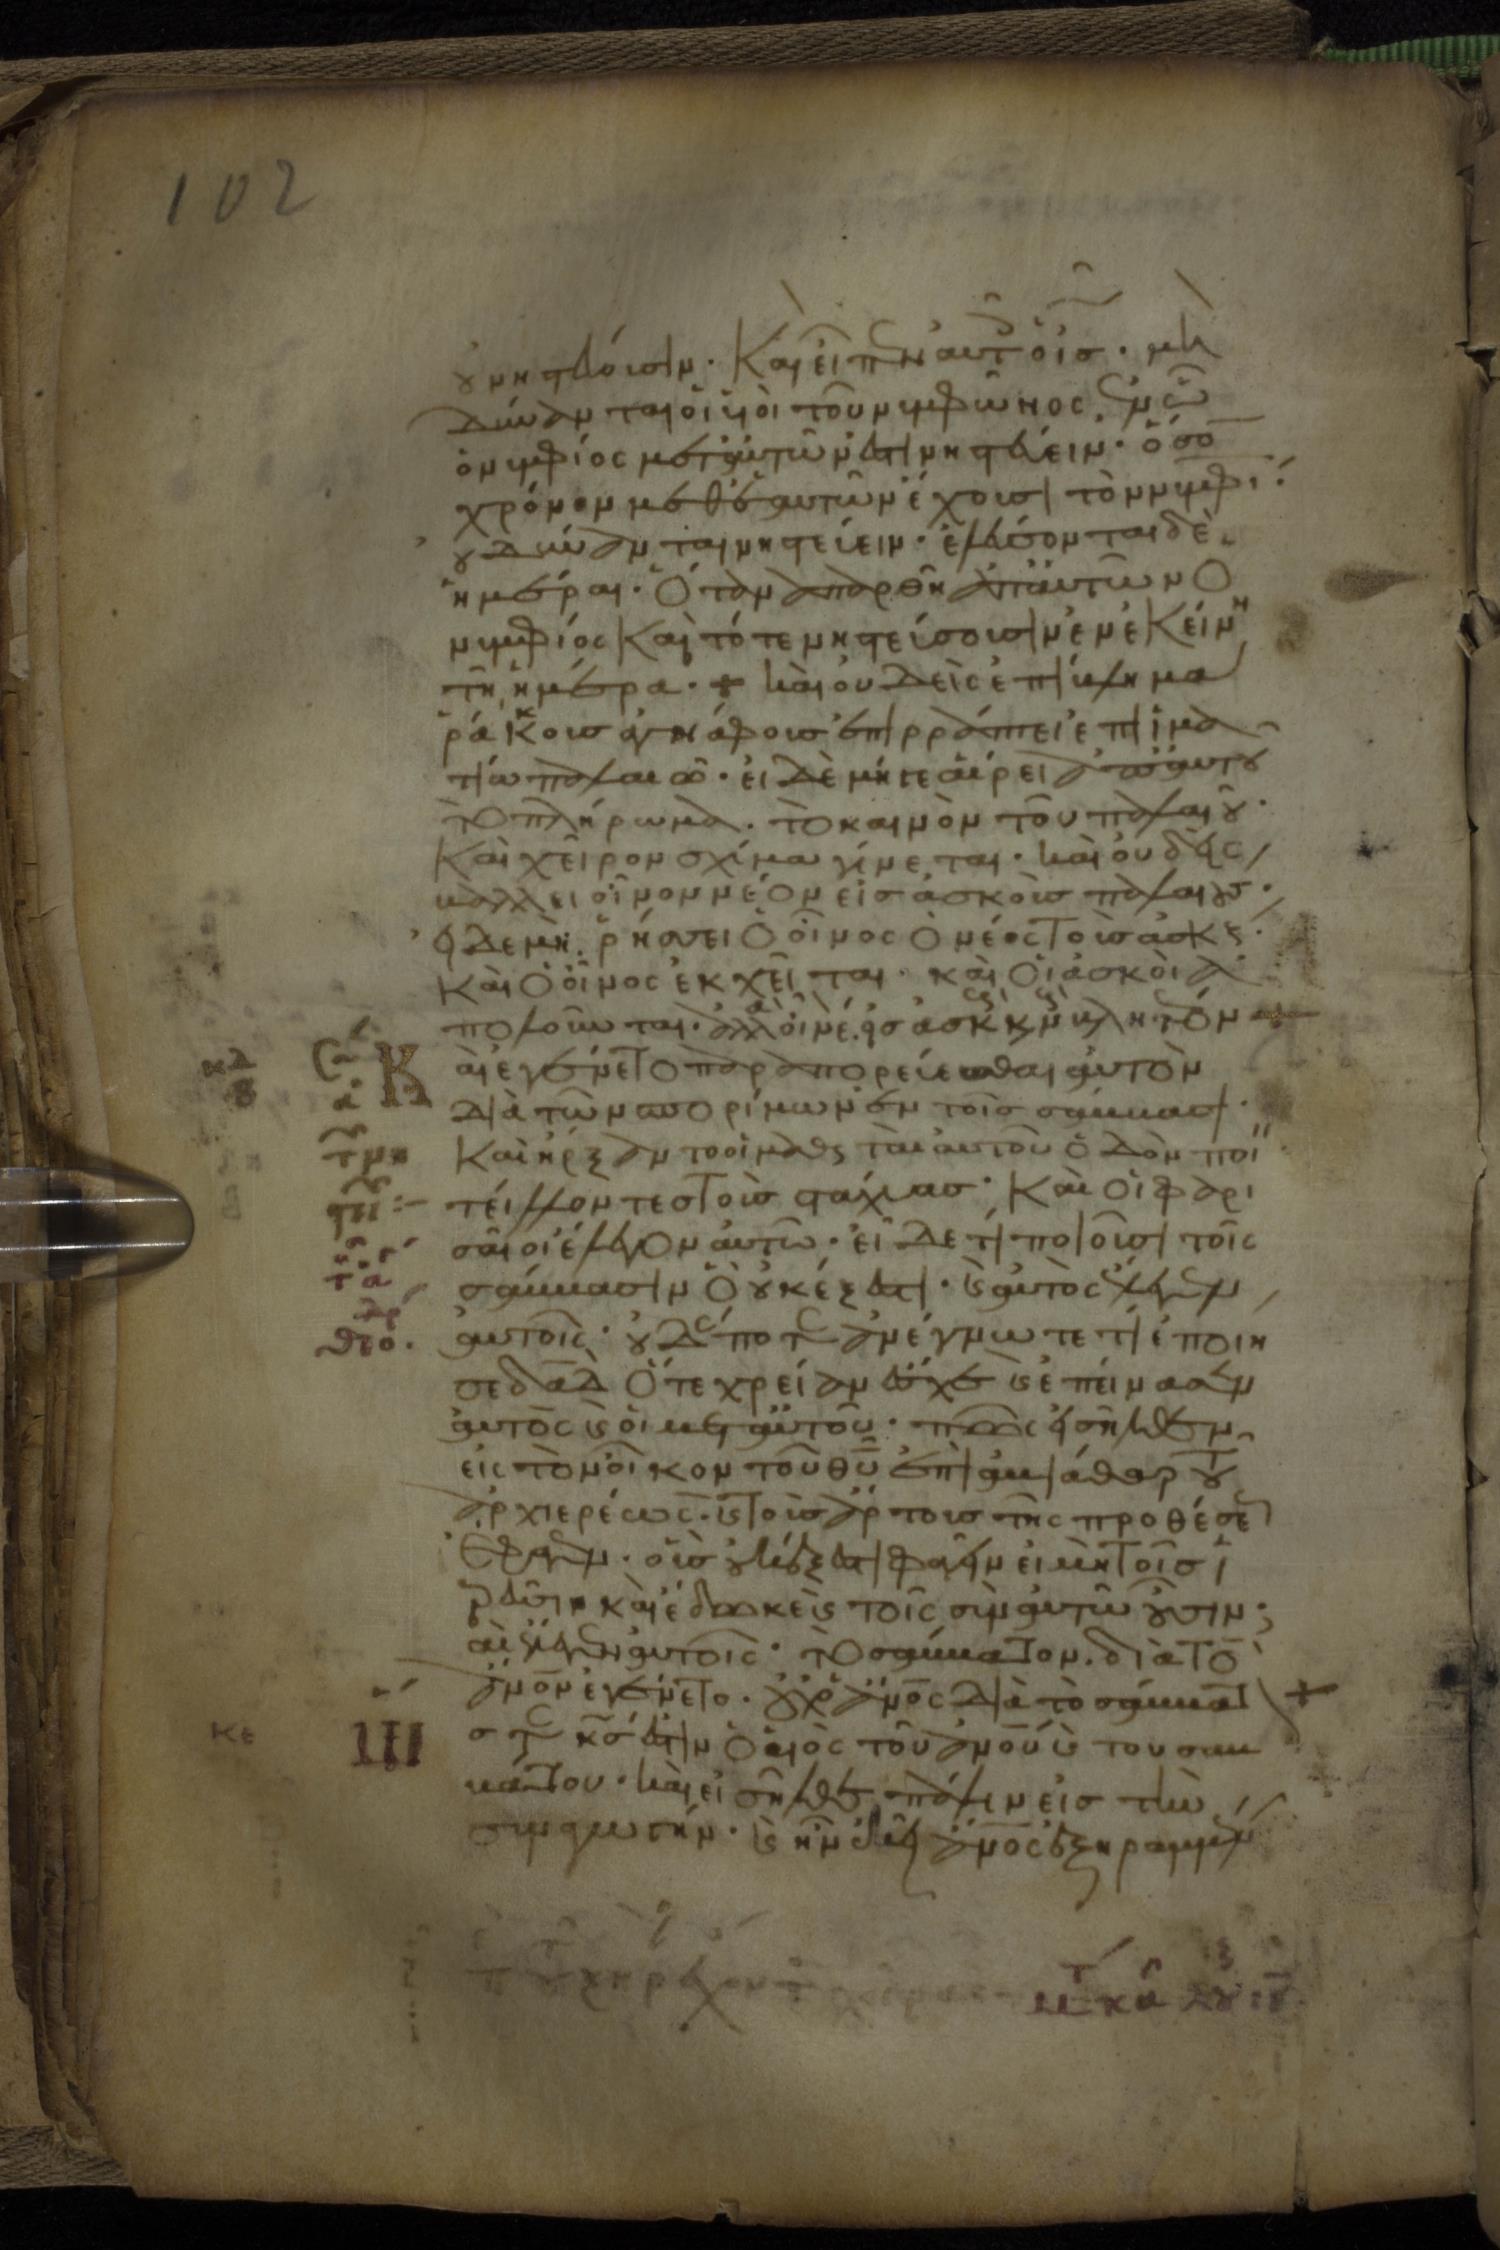 102
οὐ νηστεύουσιν. Καὶ εἶπεν αὐτοῖς. μὴ
δύνανται οἱ υἱοὶ τοῦ νυμφῶνος, ἐν ᾧ
ὁ νυμφίος μετ' αὐτῶν ἐστι νηστεύειν. ὅσον
χρόνον μεθ' ἑαυτῶν ἔχουσι τὸν νυμφίον
οὐ δύνανται νηστεύειν. ἐλεύσονται δὲ
ἡμέραι. ὅταν ἀπαρθῇ ἀπ' αὐτῶν ὁ
νυμφίος καὶ τότε νηστεύσουσιν ἐν ἐκείνη
τῇ ἡμέρα. + καὶ οὐδεὶς ἐπίβλημα
ῥάκκους ἀγνάφους ἐπιρράπτει ἐπὶ ἱμα
τίω παλαιῶ. εἰ δὲ μήγε αἴρει ἀπ' αὐτοῦ
τὸ πλήρωμα. τὸ καινὸν τοῦ παλαιοῦ.
Καὶ χεῖρον σχίσμα γίνεται. καὶ οὐδεὶς
βάλλει οἶνον νέον εἰς ἀσκοὺς παλαιούς.
εἰ δὲ μὴ. ῥήσσει ὁ οἶνος ὁ νέος τοὺς ἀσκούς.
Καὶ ὁ οἶνος ἐκχεῖται. καὶ οἱ ἀσκοὶ ἀ
πολοῦνται.
αὶ ἐγένετο παραπορεύεσθαι αὐτὸν
διὰ τῶν σπορίμων ἐν τοῖς σάββασι.
Καὶ ἤρξαντο οἱ μαθηταὶ αὐτοῦ ὁδὸν ποι
τίλλοντες τοὺς στάχυας. Καὶ οἱ φαρι
σαῖοι ἔλεγον αὐτῶ. εἶ δε τί ποιοῦσι τοῖς
σάββασιν ὃ οὐκ ἔξεστι. καὶ αὐτὸς ἔλεγεν
αὐτοῖς. οὐδέποτε ἀνέγνωτε τί ἐποίη
σε δαδ ὅτε χρείαν ἔσχε καὶ ἐπείνασεν
αὐτὸς καὶ οἱ μετ' αὐτοῦ. πῶς εἰσῆλθεν
εἰς τὸν οἶκον τοῦ θυ ἐπὶ ἀβιάθαρ τοῦ
ἀρχιερέως. καὶ τοὺς ἄρτους τῆς προθέσε
ἔφαγεν. οὓς οὐκ ἔξεστι φαγεῖν εἰ μὴ τοῖς ἱ
ερεῦσιν καὶ ἔδωκε καὶ τοῖς σὺν αὐτῶ οὖσιν.
αὶ ἔλεγεν αὐτοῖς. τὸ σάββατον. διὰ τὸν
ἄνον ἐγένετο. οὐχ ὁ ἄνος διὰ τὸ σάββατ +
κς ἐστιν ὁ υἱὸς τοῦ ἀνου καὶ τοῦ σαβ
βάτου. καὶ εἰσῆλθε πάλιν εἰς τὴν
συναγωγήν. καὶ ἦν ἐκεῖ ἄνος ἐξηραμμέν
κδ
Κ
κε